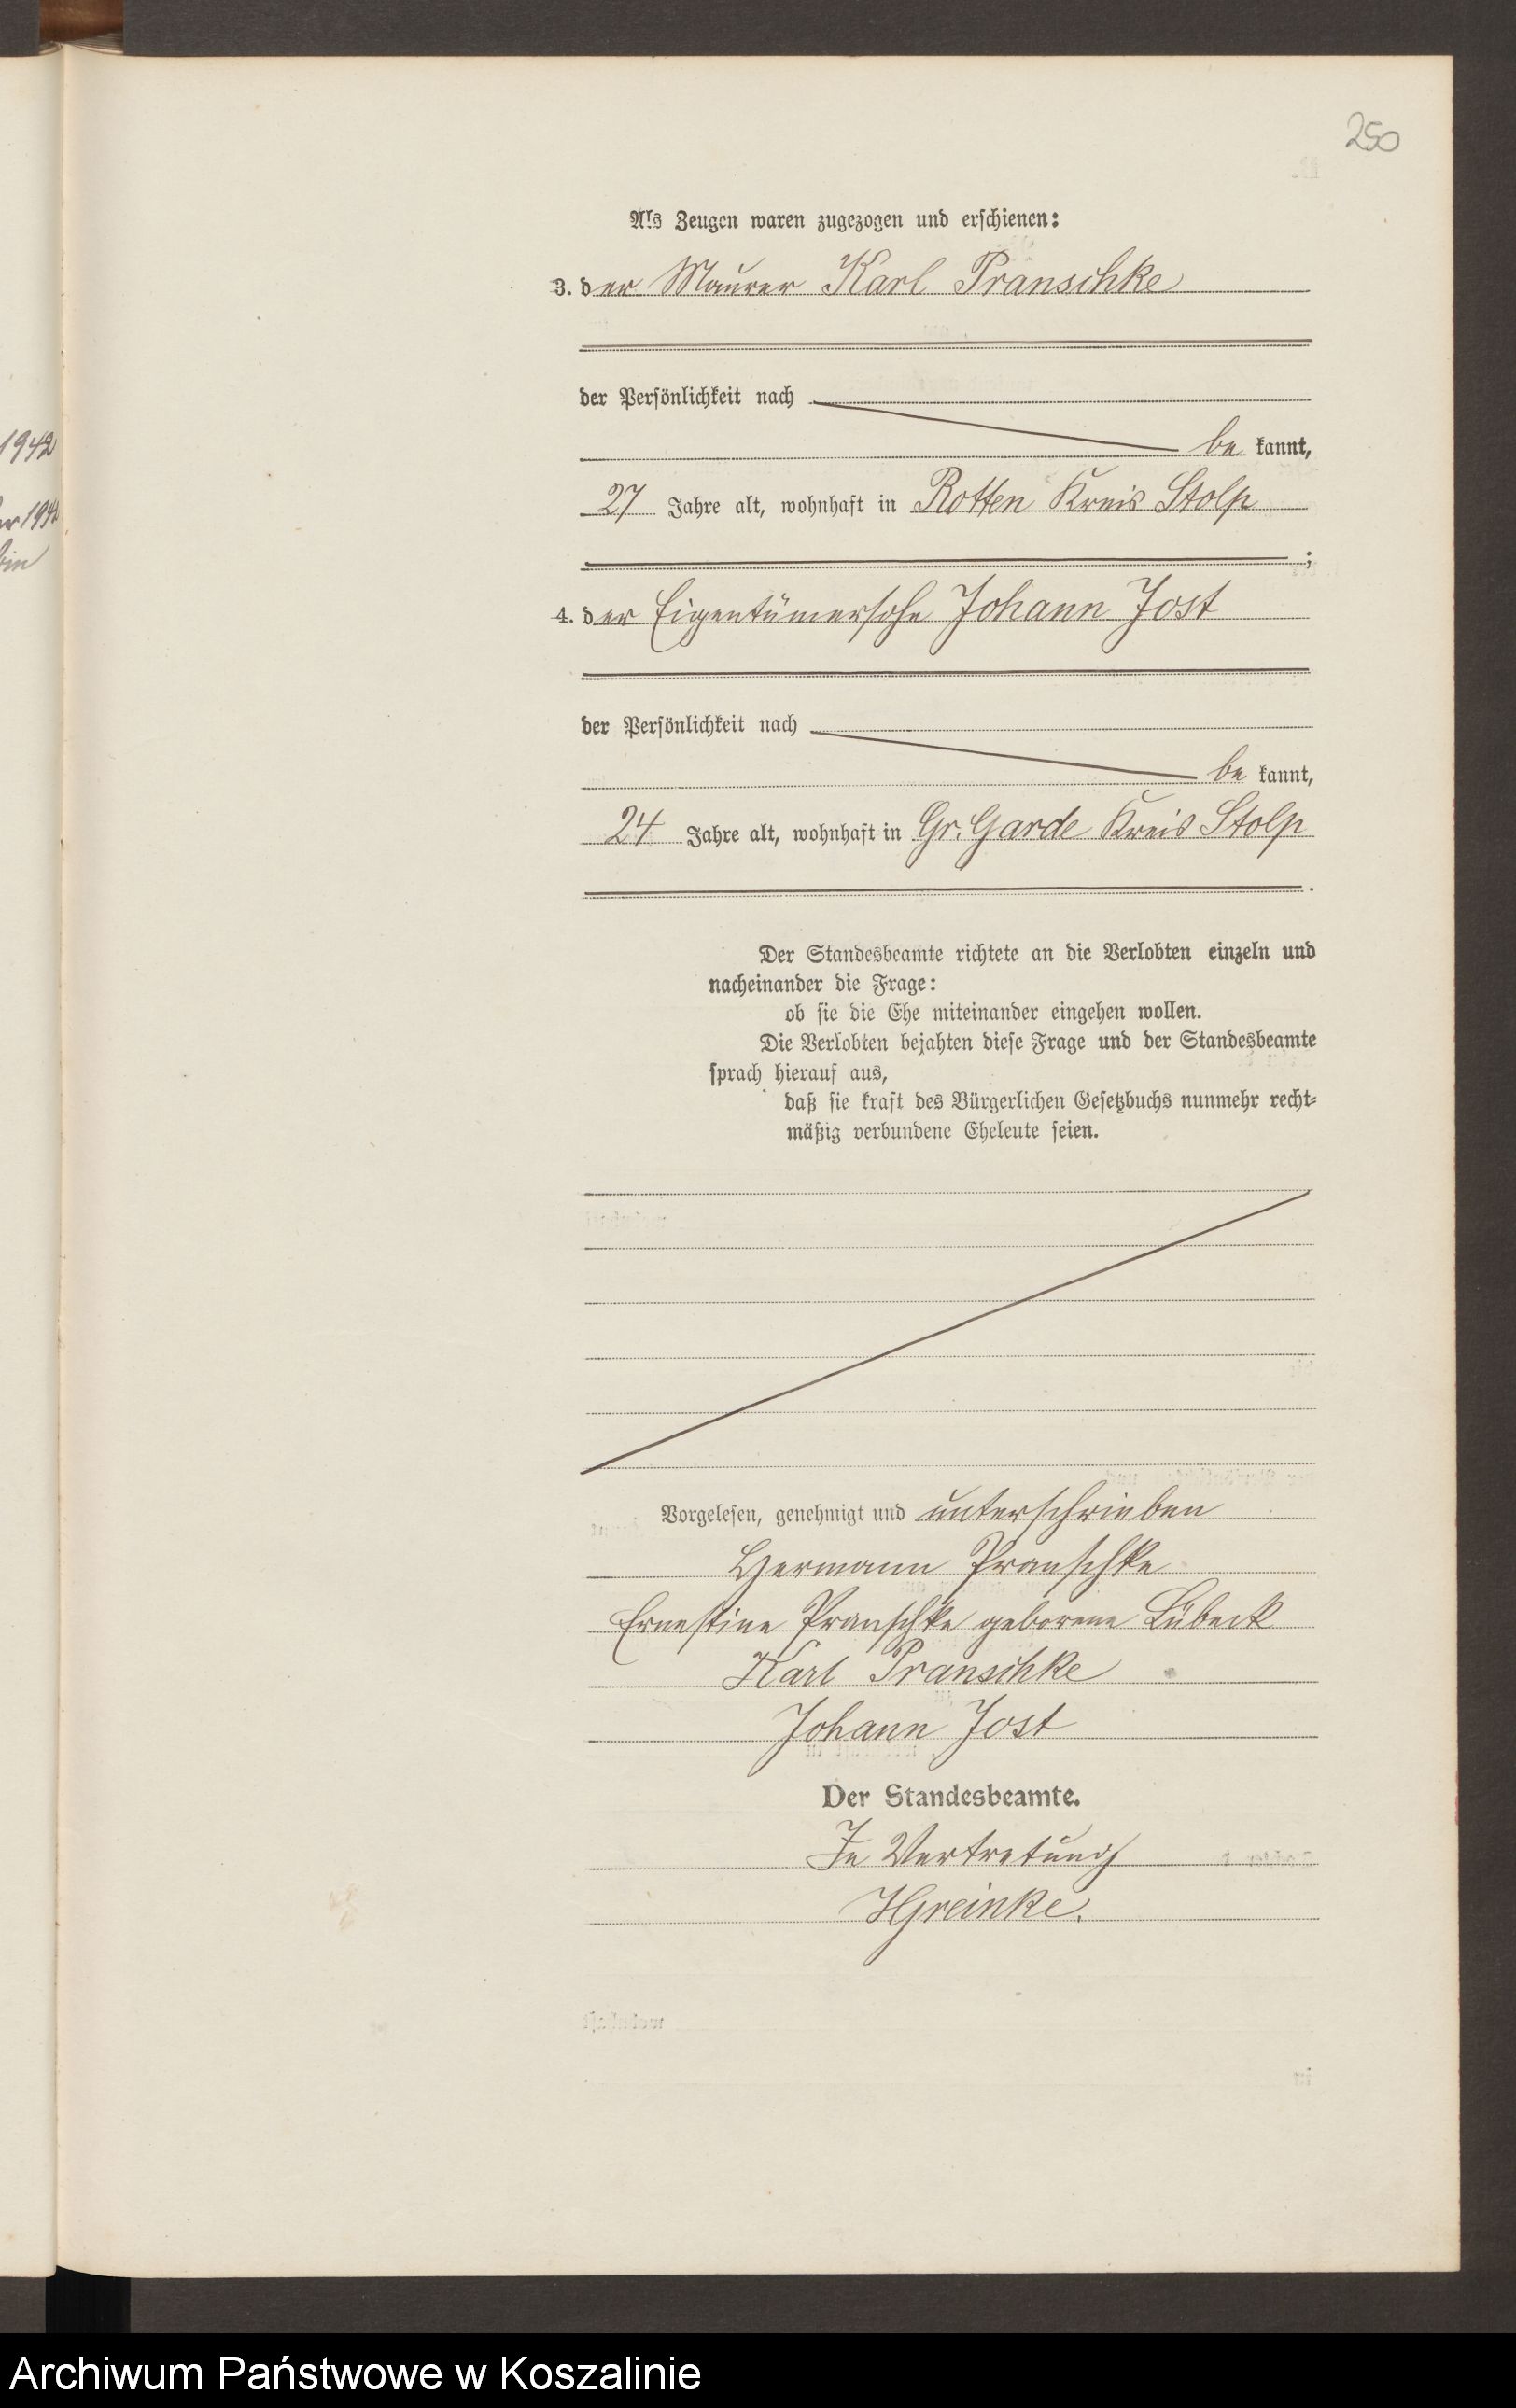 250
1942
1942
Als Zeugen waren zugezogen und erschienen:
3. der Maurer Karl Pranschke
der Persönlichkeit nach
be kannt,
27 Jahre alt, wohnhaft in Rotten Kreis Stolp
;
4. der Eigentümersohn Johann Jost
der Persönlichkeit nach
be kannt,
24 Jahre alt, wohnhaft in Gr. Garde Kreis Stolp
.
Der Standesbeamte richtete an die Verlobten einzeln und
nacheinander die Frage:
ob sie die Ehe miteinander eingehen wollen.
Die Verlobten bejahten diese Frage und der Standesbeamte
sprach hierauf aus,
daß sie kraft des Bürgerlichen Gesetzbuchs nunmehr recht-
mäßig verbundene Eheleute seien.
Vorgelesen, genehmigt und unterschrieben
Hermann Pranschke
Ernestine Pranschke geborene Lübeck
Karl Pranschke
Johann Jost
Der Standesbeamte.
In Vertretung
HGreinke.
Archiwum Państwowe w Koszalinie